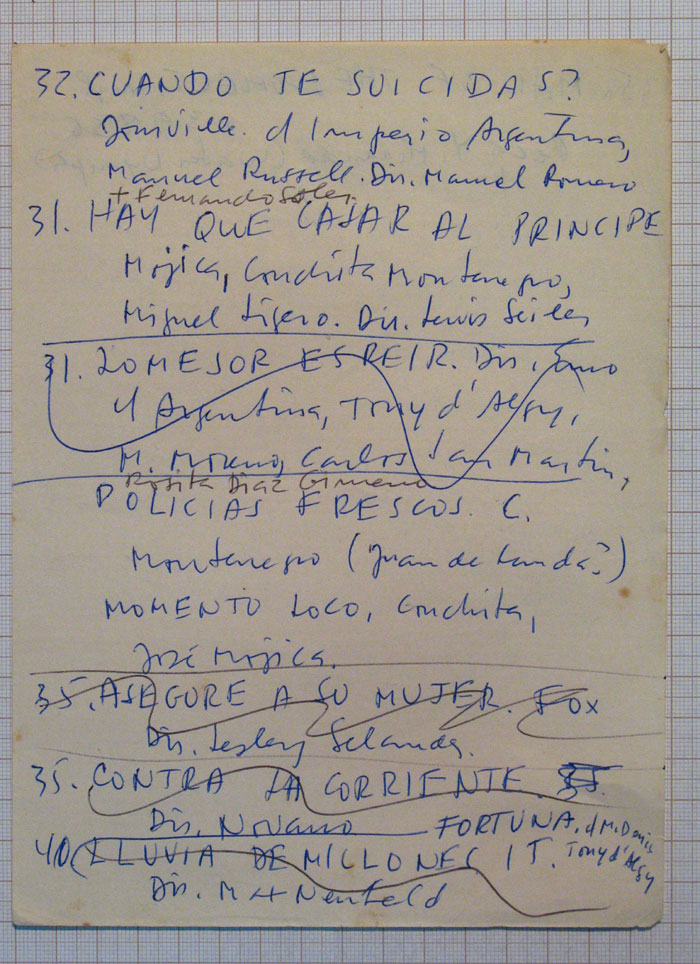 32. CUANDO TE SUICIDAS?
Joinville. d Imperio Argentina,
Manuel Russell. Dir. Manuel Romero
+ Fernando Soler.
31. HAY QUE CASAR AL PRINCIPE
Mojica, Conchita Montenegro,
Miguel Ligero. Dir. Lewis Seiler
31. LO MEJOR ES REIR. Dir.
Argentina, Tony d'Algy,
M. Moreno, Carlos San Martin,
Rosita Diaz Gimeno
POLICIAS FRESCOS. C.
Montenegro (Juan de Landa?)
MOMENTO LOCO, Conchita,
José Mojica.
35. ASEGURE A SU MUJER. FOX
Dir. Lesley Selander.
35. CONTRA LA CORRIENTE. 35.
Dir. Novarro
FORTUNA. d M. Denis
40 (LLUVIA DE MILLONES IT. Tony d'Algy
Dir. Max Neufeld